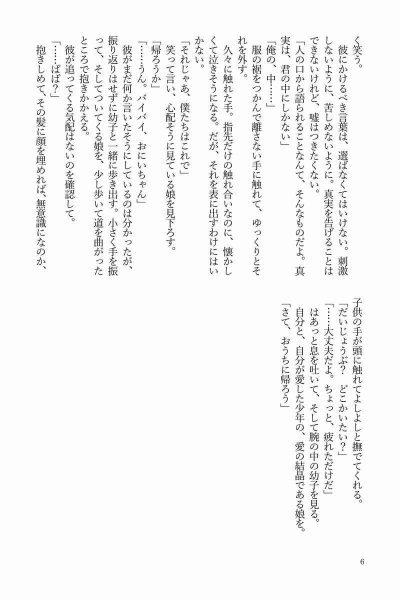 く笑う。
　彼にかけるべき言葉は、選ばなくてはいけない。刺激
しないように、苦しめないように。真実を告げることは
できないけれど、嘘はつきたくない。
「人の口から語られることなんて、そんなものだよ。真
実は、君の中にしかない」
「俺の、中……」
　服の裾をつかんで離さない手に触れて、ゆっくりとそ
れを外す。
　久々に触れた手。指先だけの触れ合いなのに、懐かし
くて泣きそうになる。だが、それを表に出すわけにはい
かない。
「それじゃあ、僕たちはこれで」
　笑って言い、心配そうに見ている娘を見下ろす。
「帰ろうか」
「……うん。バイバイ、おにいちゃん」
　彼がまだ何か言いたそうにしているのは分かったが、
振り返りはせずに幼子と一緒に歩き出す。小さく手を振
って、そしてついてくる娘を、少し歩いて道を曲がった
ところで抱きかかえる。
　彼が追ってくる気配はないのを確認して。
「……ぱぱ？」
　抱きしめて、その髪に顔を埋めれば、無意識になのか、
子供の手が頭に触れてよしよしと撫でてくれる。
「だいじょうぶ？　どこかいたい？」
「……大丈夫だよ。ちょっと、疲れただけだ」
　はあっと息を吐いて、そして腕の中の幼子を見る。
　自分と、自分が愛した少年の、愛の結晶である娘を。
「さて、おうちに帰ろう」
6